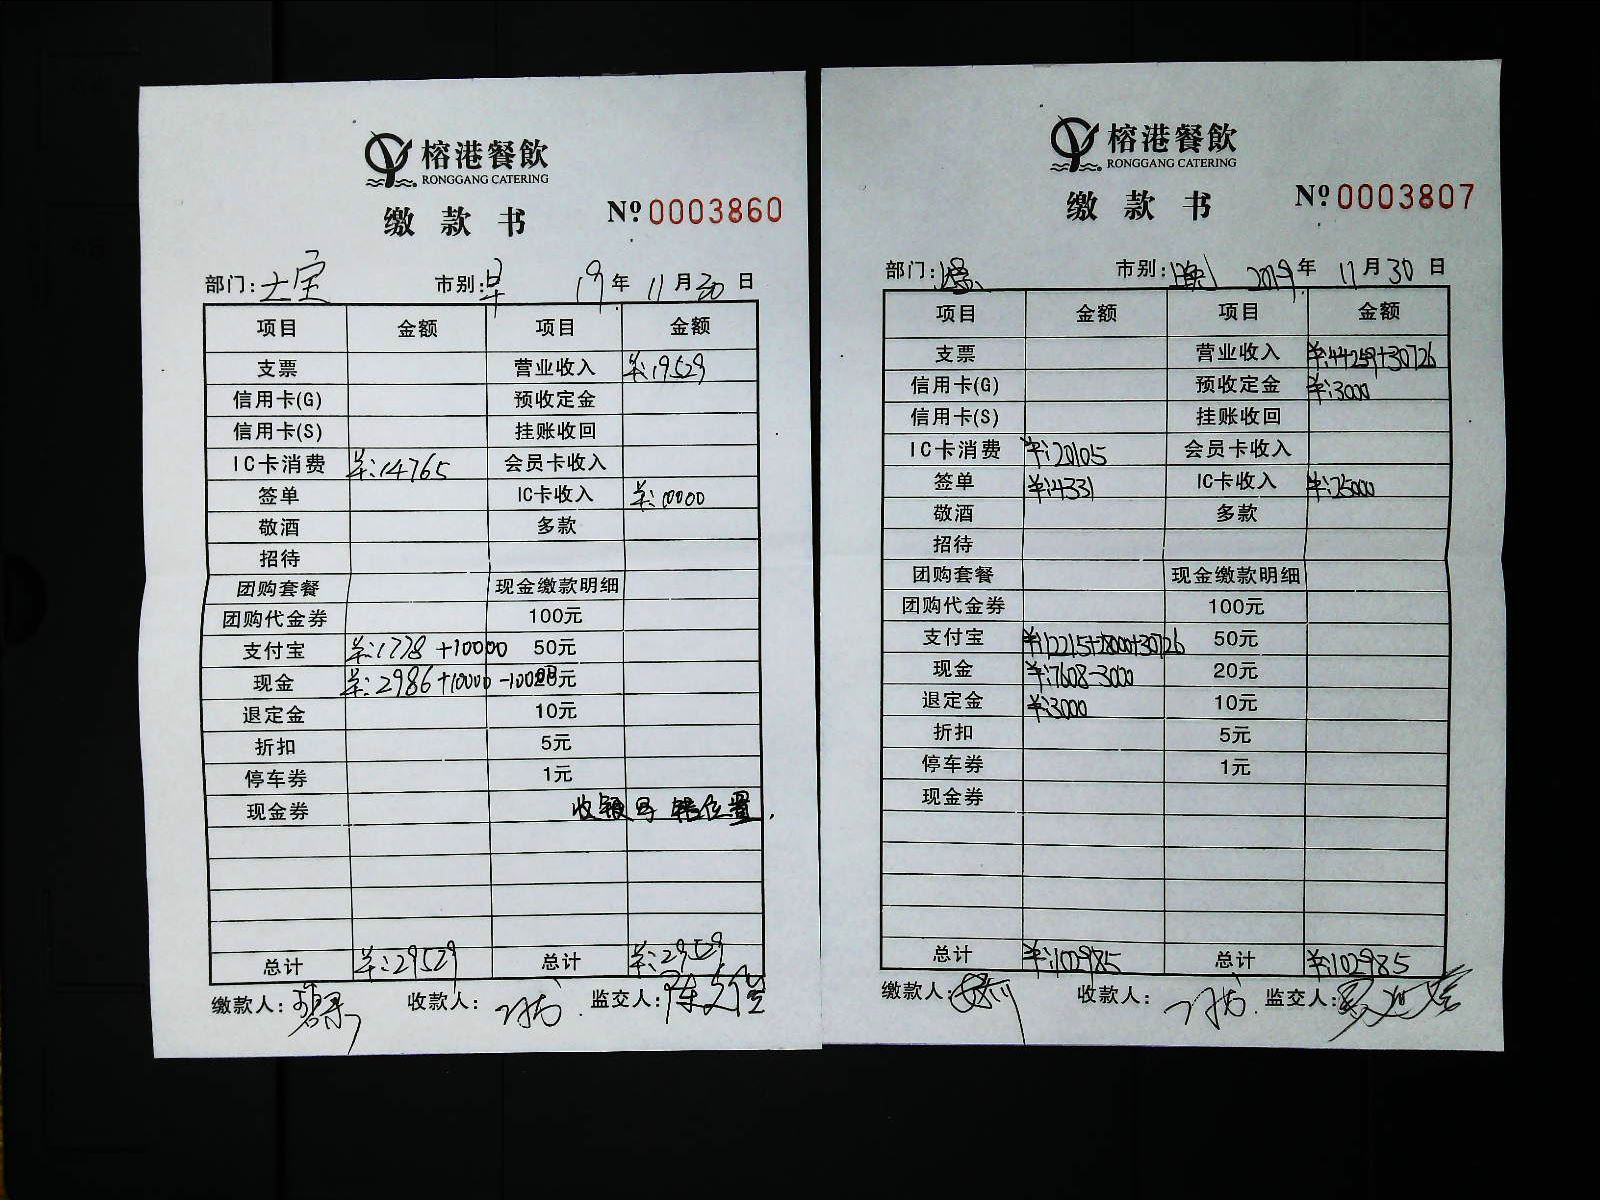 榕港餐飲
RONGGANG CATERING
缴款书 Nº 0003860
部门: 市别:早 19年11月30日
项目 金额 项目 金额
支票 营业收入 ¥:19529
信用卡(G) 预收定金
信用卡(S) 挂账收回
IC卡消费 ¥:14765 会员卡收入
签单 IC卡收入 ¥:10000
敬酒 多款
招待
团购套餐 现金缴款明细
团购代金券 100元
支付宝 ¥:1778+10000 50元
现金 ¥:2986+10000-10000 20元
退定金 10元
折扣 5元
停车券 1元
现金券
总计 ¥:29529 总计 ¥:29529
缴款人: 收款人: 监交人:
榕港餐飲
RONGGANG CATERING
缴款书 Nº 0003807
部门: 市别: 2019年11月30日
项目 金额 项目 金额
支票 营业收入 ¥:44259+30726
信用卡(G) 预收定金 ¥:3000
信用卡(S) 挂账收回
IC卡消费 ¥:20105 会员卡收入
签单 ¥:4331 IC卡收入 ¥:25000
敬酒 多款
招待
团购套餐 现金缴款明细
团购代金券 100元
支付宝 50元
现金 ¥:7608-3000 20元
退定金 ¥:3000 10元
折扣 5元
停车券 1元
现金券
总计 ¥:102985 总计 ¥:102985
缴款人: 收款人: 监交人: